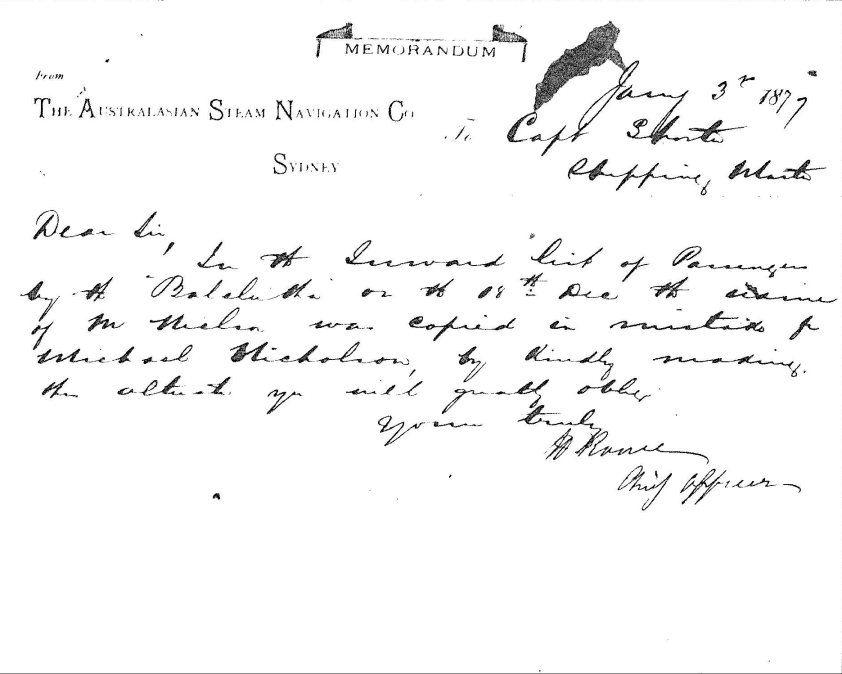 MEMORANDUM
From
THE AUSTRALASIAN STEAM NAVIGATION CO
SYDNEY
Jany 3r 1877
To Capt
Shipping Master
Dear Sir,
In th Inward list of Passengers
by th on th 18th Dec th name
of M Nielson was copied in mistake fr
Michael Nicholson, by kindly making
the you will greatly oblige
Yours truly
Chief Officer